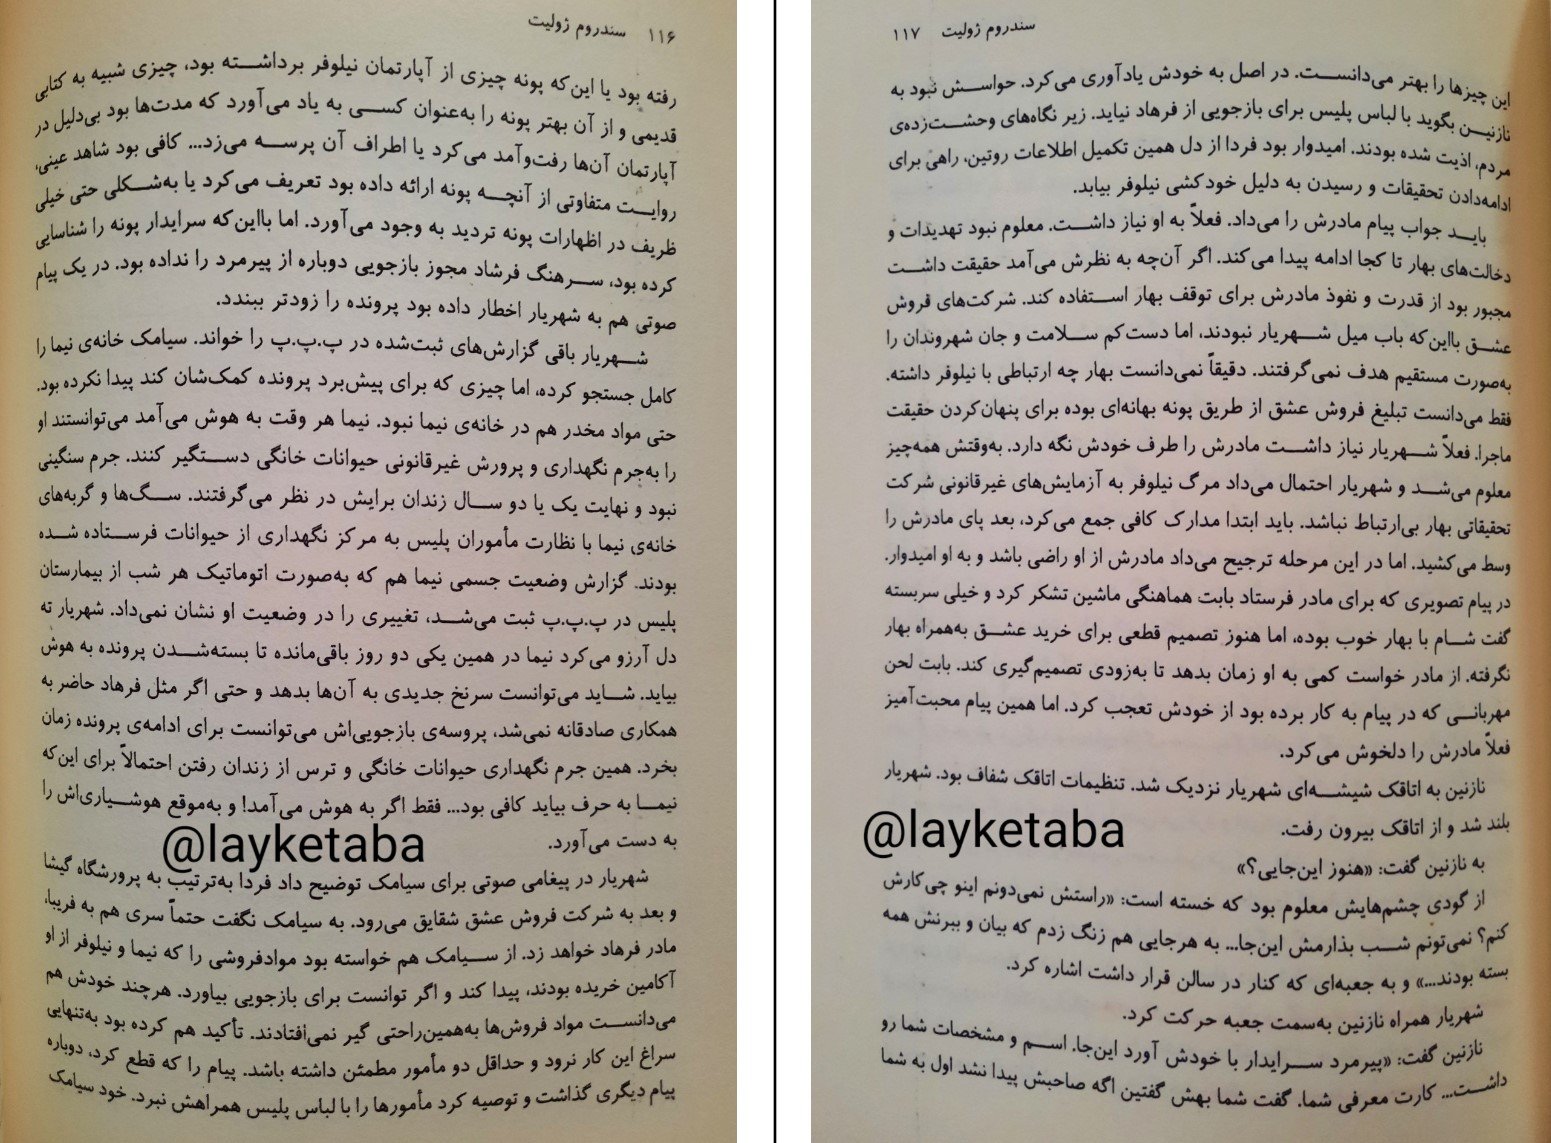 ۱۱۶ سندروم ژولیت
رفته بود یا این‌که پونه چیزی از آپارتمان نیلوفر برداشـــته بود، چیزی شبیه به کتابی
قدیمی و از آن بهتر پونه را به‌عنوان کســی به یاد می‌آورد که مدت‌ها بود بی‌دلیل در
آپارتمان آن‌ها رفت‌وآمد می‌کرد یا اطراف آن پرســه می‌زد... کافی بود شاهد عینی،
روایــت متفاوتی از آنچــه پونه ارائه داده بود تعریف می‌کرد یا به‌شــکلی حتی خیلی
ظریف در اظهارات پونه تردید به وجود می‌آورد. اما بااین‌که سرایدار پونه را شناسایی
کرده بود، ســرهنگ فرشاد مجوز بازجویی دوباره از پیرمرد را نداده بود. در یک پیام
صوتی هم به شهریار اخطار داده بود پرونده را زودتر ببندد.
شــهریار باقی گزارش‌های ثبت‌شده در پ.پ.پ را خواند. سیامک خانه‌ی نیما را
کامل جستجو کرده، اما چیزی که برای پیش‌برد پرونده کمک‌شان کند پیدا نکرده بود.
حتی مواد مخدر هم در خانه‌ی نیما نبود. نیما هر وقت به هوش می‌آمد می‌توانستند او
را به‌جرم نگهداری و پرورش غیرقانونی حیوانات خانگی دســتگیر کنند. جرم سنگینی
نبود و نهایت یک یا دو ســال زندان برایش در نظر می‌گرفتند. ســگ‌ها و گربه‌های
خانه‌ی نیما با نظارت مأموران پلیس به مرکز نگهداری از حیوانات فرســتاده شــده
بودند. گزارش وضعیت جسمی نیما هم که به‌صورت اتوماتیک هر شب از بیمارستان
پلیس در پ.پ.پ ثبت می‌شــد، تغییری را در وضعیت او نشان نمی‌داد. شهریار ته
دل آرزو می‌کرد نیما در همین یکی دو روز باقی‌مانده تا بسته‌شــدن پرونده به هوش
بیاید. شــاید می‌توانست سرنخ جدیدی به آن‌ها بدهد و حتی اگر مثل فرهاد حاضر به
همکاری صادقانه نمی‌شد، پروسه‌ی بازجویی‌اش می‌توانست برای ادامه‌ی پرونده زمان
بخرد. همین جرم نگهداری حیوانات خانگی و ترس از زندان رفتن احتمالاً برای این‌که
نیمــا به حرف بیاید کافی بود... فقط اگر به هوش می‌آمد! و به‌موقع هوشــیاری‌اش را
به دست می‌آورد.
@layketaba
شهریار در پیغامی صوتی برای سیامک توضیح داد فردا به‌ترتیب به پرورشگاه گیشا
و بعد به شرکت فروش عشق شقایق می‌رود. به سیامک نگفت حتماً سری هم به فریبا،
مادر فرهاد خواهد زد. از ســیامک هم خواسته بود موادفروشی را که نیما و نیلوفر از او
آکامین خریده بودند، پیدا کند و اگر توانست برای بازجویی بیاورد. هرچند خودش هم
می‌دانســت مواد فروش‌ها به‌همین‌راحتی گیر نمی‌افتادند. تأکید هم کرده بود به‌تنهایی
سراغ این کار نرود و حداقل دو مأمور مطمئن داشته باشد. پیام را که قطع کرد، دوباره
پیام دیگری گذاشت و توصیه کرد مأمورها را با لباس پلیس همراهش نبرد. خود سیامک
سندروم ژولیت ۱۱۷
این چیزها را بهتر می‌دانســت. در اصل به خودش یادآوری می‌کرد. حواســش نبود به
نازنیــن بگوید با لباس پلیس برای بازجویی از فرهاد نیاید. زیر نگاه‌های وحشــت‌زده‌ی
مردم، اذیت شده بودند. امیدوار بود فردا از دل همین تکمیل اطلاعات روتین، راهی برای
ادامه‌دادن تحقیقات و رسیدن به دلیل خودکشی نیلوفر بیابد.
بایــد جواب پیام مادرش را می‌داد. فعلاً به او نیاز داشت. معلوم نبود تهدیدات و
دخالت‌های بهار تا کجا ادامه پیدا می‌کند. اگر آن‌چه به نظرش می‌آمد حقیقت داشت
مجبور بود از قدرت و نفوذ مادرش برای توقف بهار اســتفاده کند. شرکت‌های فروش
عشــق بااین‌که باب میل شــهریار نبودند، اما دست‌کم ســلامت و جان شهروندان را
به‌صورت مستقیم هدف نمی‌گرفتند. دقیقاً نمی‌دانست بهار چه ارتباطی با نیلوفر داشته.
فقط می‌دانست تبلیغ فروش عشق از طریق پونه بهانه‌ای بوده برای پنهان‌کردن حقیقت
ماجرا. فعلاً شــهریار نیاز داشــت مادرش را طرف خودش نگه دارد. به‌وقتش همه‌چیز
معلوم می‌شــد و شهریار احتمال می‌داد مرگ نیلوفر به آزمایش‌های غیرقانونی شرکت
تحقیقاتی بهار بی‌ارتباط نباشد. باید ابتدا مدارک کافی جمع می‌کرد، بعد پای مادرش را
وسط می‌کشید. اما در این مرحله ترجیح می‌داد مادرش از او راضی باشد و به او امیدوار.
در پیام تصویری که برای مادر فرستاد بابت هماهنگی ماشین تشکر کرد و خیلی سربسته
گفت شــام با بهار خوب بوده، اما هنوز تصمیم قطعی برای خرید عشــق به‌همراه بهار
نگرفته. از مادر خواست کمی به او زمان بدهد تا به‌زودی تصمیم‌گیری کند. بابت لحن
مهربانــی که در پیام به کار برده بود از خودش تعجب کرد. اما همین پیام محبت‌آمیز
فعلاً مادرش را دلخوش می‌کرد.
نازنین به اتاقک شیشــه‌ای شهریار نزدیک شد. تنظیمات اتاقک شفاف بود. شهریار
بلند شد و از اتاقک بیرون رفت.
@layketaba
به نازنین گفت: «هنوز این‌جایی؟»
از گودی چشم‌هایش معلوم بود که خسته است: «راستش نمی‌دونم اینو چی‌کارش
کنم؟ نمی‌تونم شــب بذارمش این‌جا... به هرجایی هم زنگ زدم که بیان و ببرنش همه
بسته بودند...» و به جعبه‌ای که کنار در سالن قرار داشت اشاره کرد.
شهریار همراه نازنین به‌سمت جعبه حرکت کرد.
نازنین گفت: «پیرمرد ســرایدار با خودش آورد این‌جا. اســم و مشخصات شما رو
داشــت... کارت معرفی شما. گفت شما بهش گفتین اگه صاحبش پیدا نشد اول به شما